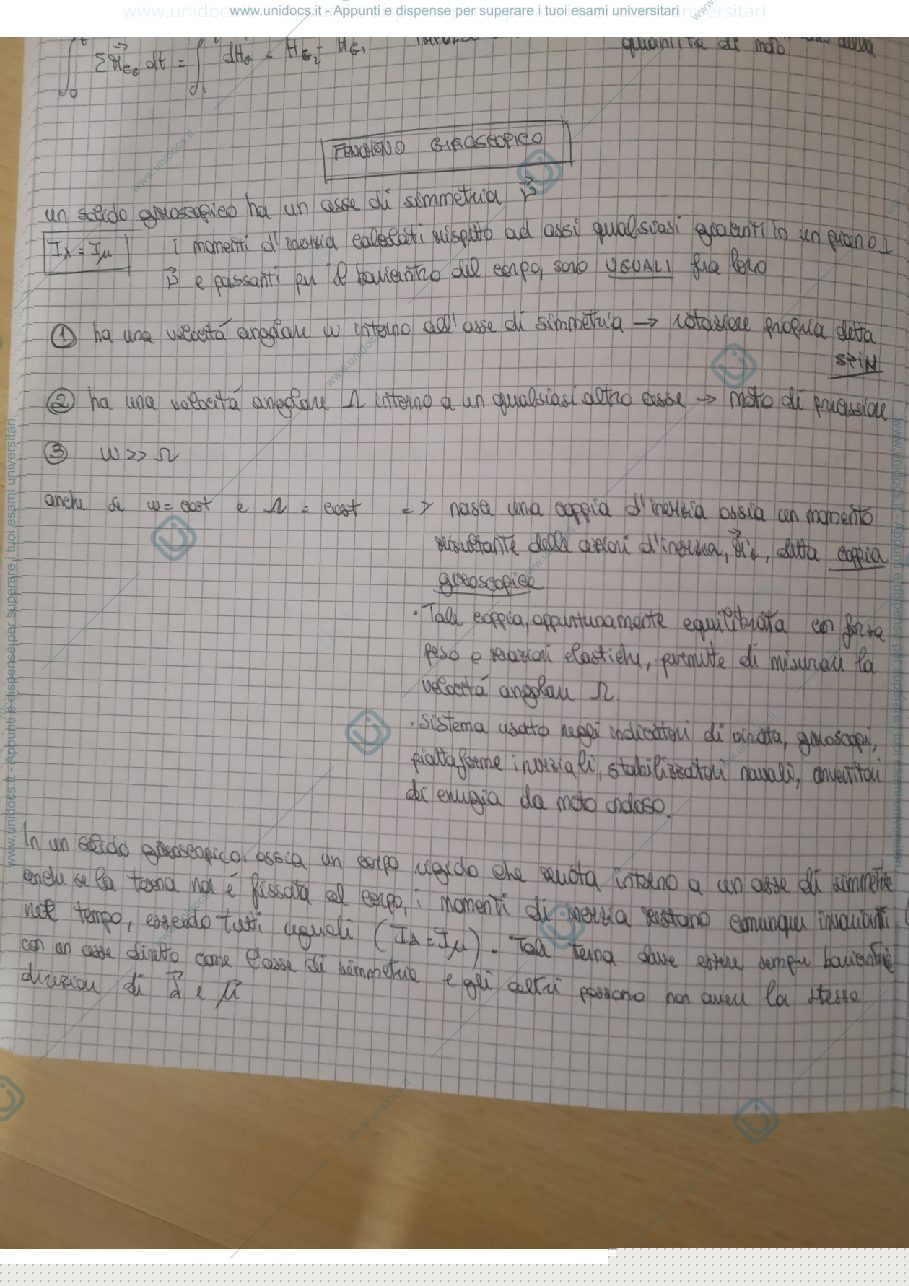 www.unidocs.it - Appunti e dispense per superare i tuoi esami universitari
quantità di moto della
FENOMENO GIROSCOPICO
un solido giroscopico ha un asse di simmetria
Iλ = Iμ i momenti d'inerzia calcolati rispetto ad assi qualsiasi giacenti in un piano ⊥
e passanti per il baricentro del corpo, sono UGUALI fra loro
① ha una velocità angolare ω intorno all'asse di simmetria → rotazione propria detta
SPIN
② ha una velocità angolare Ω intorno a un qualsiasi altro asse → moto di precessione
③ ω >> Ω
anche se ω = cost e Ω = cost -> nasce una coppia d'inerzia ossia un momento
risultante delle azioni d'inerzia, detta coppia
giroscopica
· Tale coppia, opportunamente equilibrata con forza
peso o reazioni elastiche, permette di misurare la
velocità angolare Ω.
· Sistema usato negli indicatori di virata, giroscopi,
piattaforme inerziali, stabilizzatori navali, convertitori
di energia da moto ondoso.
In un solido giroscopico, ossia un corpo rigido che ruota intorno a un asse di simmetria
anche se la terna non è fissata al corpo, i momenti di inerzia restano comunque invarianti
nel tempo, essendo tutti uguali (Iλ = Iμ). Tale terna deve essere sempre baricentrica
con un asse diretto come l'asse di simmetria e gli altri possono non avere la stessa
direzione di λ e μ